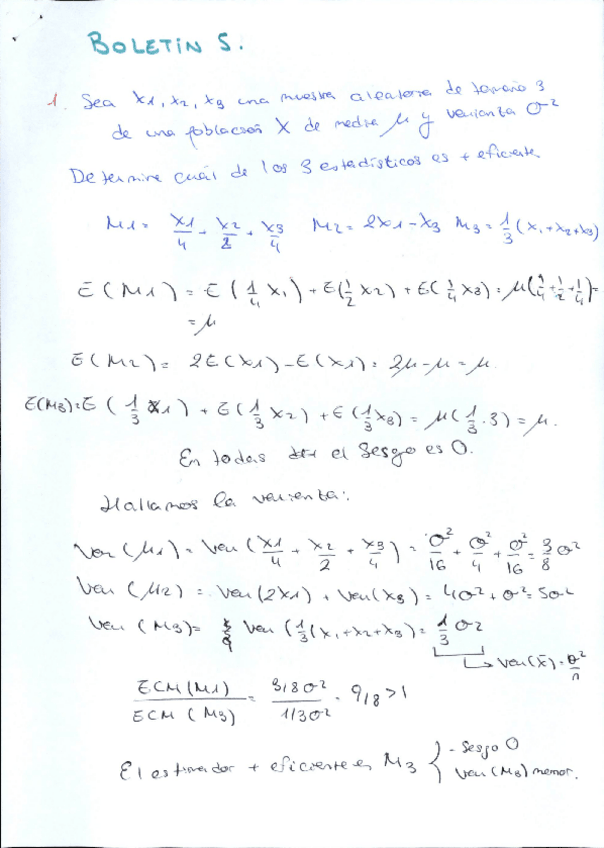 BOLETIN 5.
1. Sea X1, X2, X3 una muestra aleatoria de tamaño 3
de una población X de media μ y varianza σ²
Determine cuál de los 3 estadísticos es + eficiente
M1 = X1/4 + X2/2 + X3/4 M2 = 2X1 - X3 M3 = 1/3 (X1 + X2 + X3)
E(M1) = E(1/4 X1) + E(1/2 X2) + E(1/4 X3) = μ(1/4 + 1/2 + 1/4) =
= μ
E(M2) = 2E(X1) - E(X1) = 2μ - μ = μ.
E(M3) = E(1/3 X1) + E(1/3 X2) + E(1/3 X3) = μ(1/3 · 3) = μ.
En todas el Sesgo es 0.
Hallamos la varianza:
Var(M1) = Var(X1/4 + X2/2 + X3/4) = σ²/16 + σ²/4 + σ²/16 = 3/8 σ²
Var(M2) = Var(2X1) + Var(X3) = 4σ² + σ² = 5σ²
Var(M3) = Var(1/3(X1 + X2 + X3) = 1/3 σ²
Var(x̄) = σ²/n
ECM(M1)/ECM(M3) = 3/8σ²/1/3σ² = 9/8 > 1
El estimador + eficiente es M3 { - Sesgo 0
Var(M3) menor.